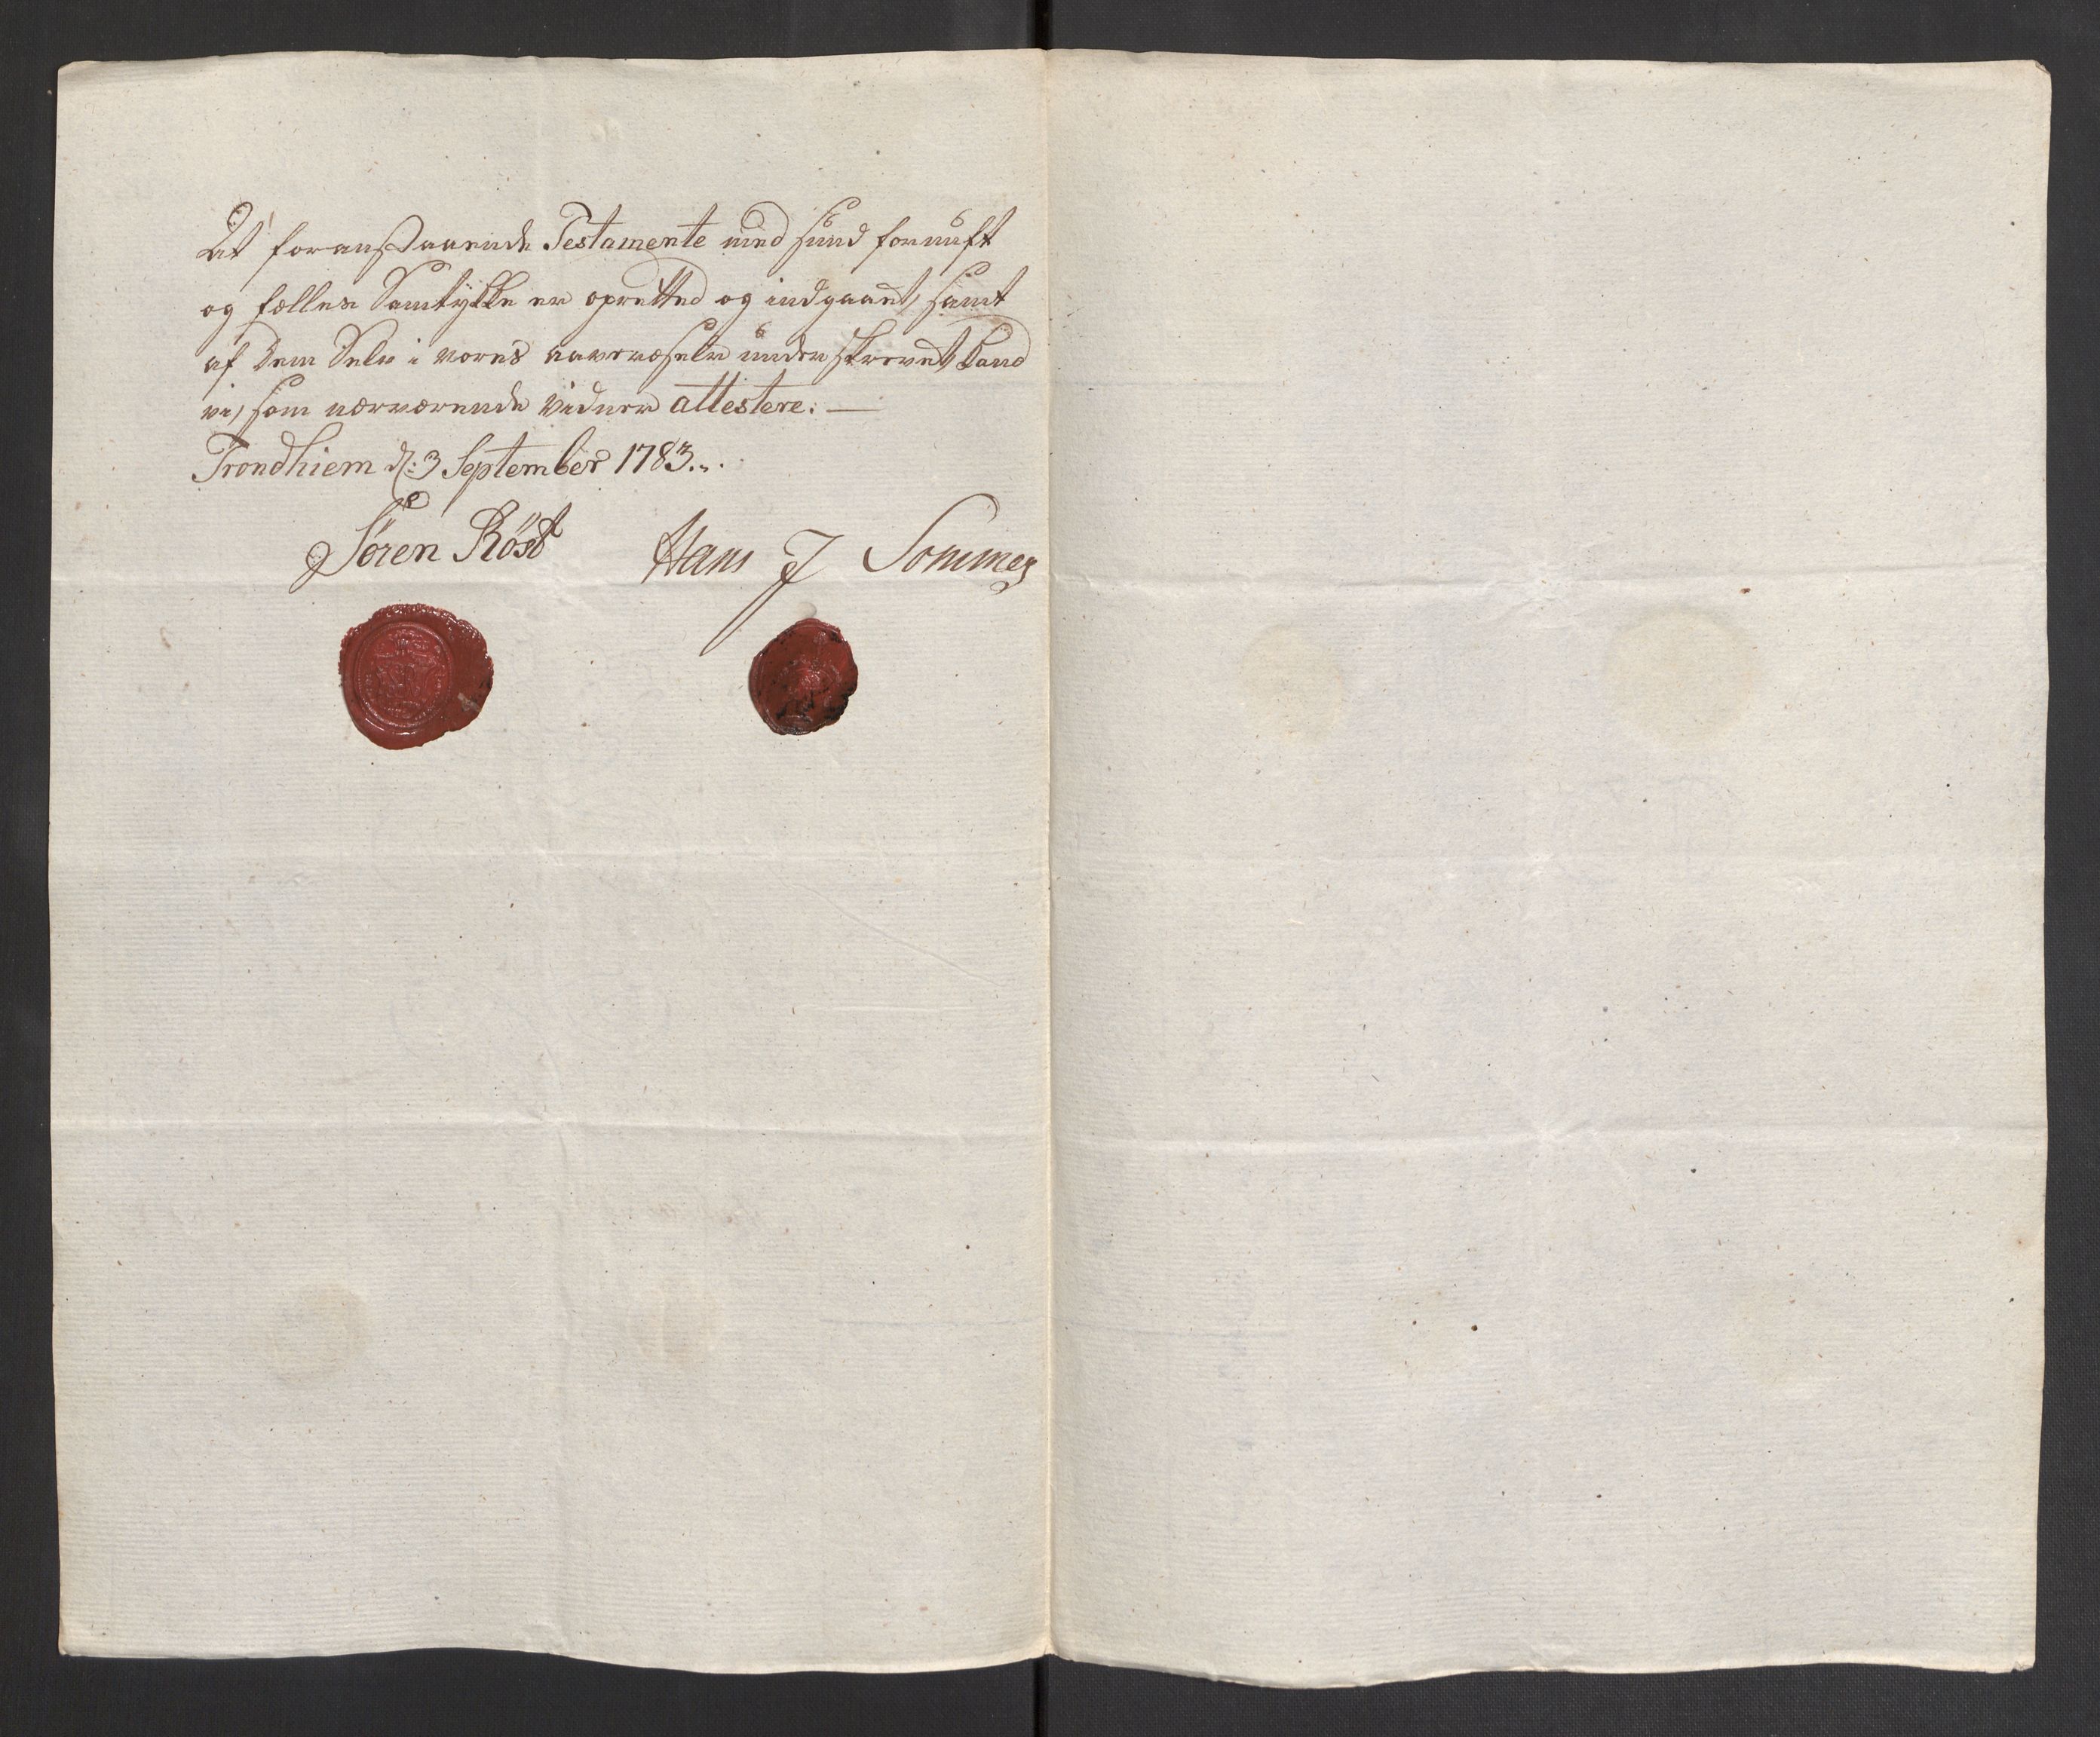 At foranstaaende Testamente med sund fornuft
og felles Samtykke er opretted og indgaaet, samt
af dem Selv i vores underskrevet,
vi, som nærværende Vidner attestere. —
Trondhiem d: 3 September 1783.
Søren Röst Hans J Sommer